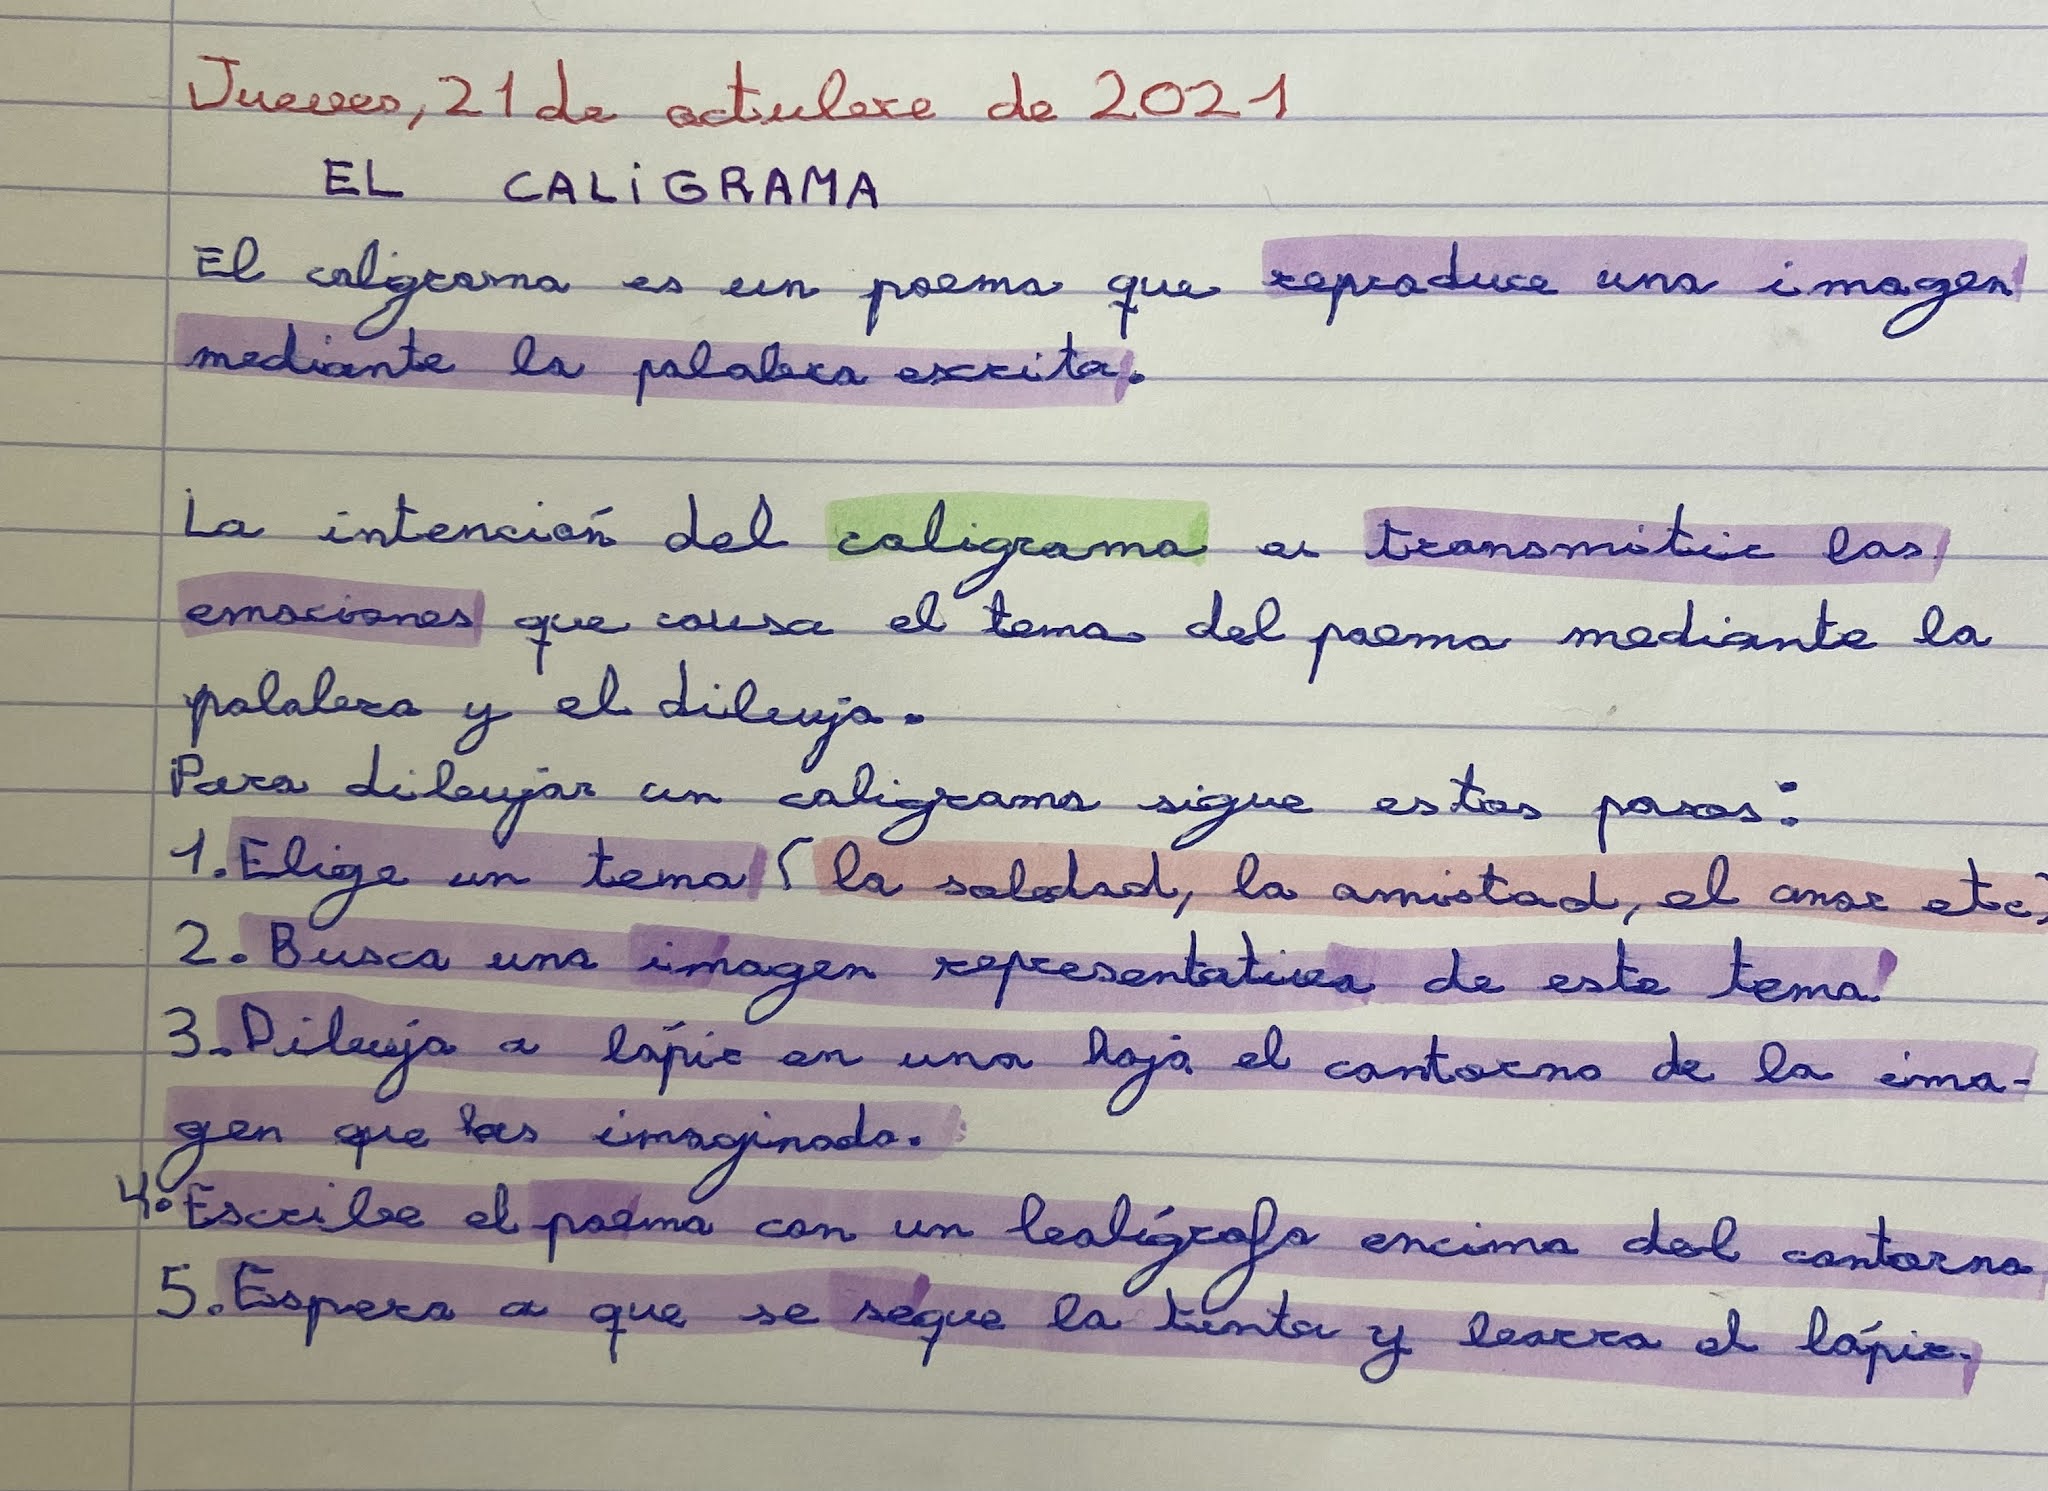 Jueves, 21 de octubre de 2021
EL CALIGRAMA
El caligrama es un poema que reproduce una imagen
mediante la palabra escrita.
La intención del caligrama a transmitir las
emociones que causa el tema del poema mediante la
palabra y el dibujo.
Para dibujar un caligrama sigue estos pasos:
1. Elige un tema ( la soledad, la amistad, el amor etc)
2. Busca una imagen representativa de este tema.
3. Dibuja a lápiz en una hoja el contorno de la ima-
gen que has imaginado.
4. Escribe el poema con un bolígrafo encima del contorno
5. Espera a que se seque la tinta y borra el lápiz.